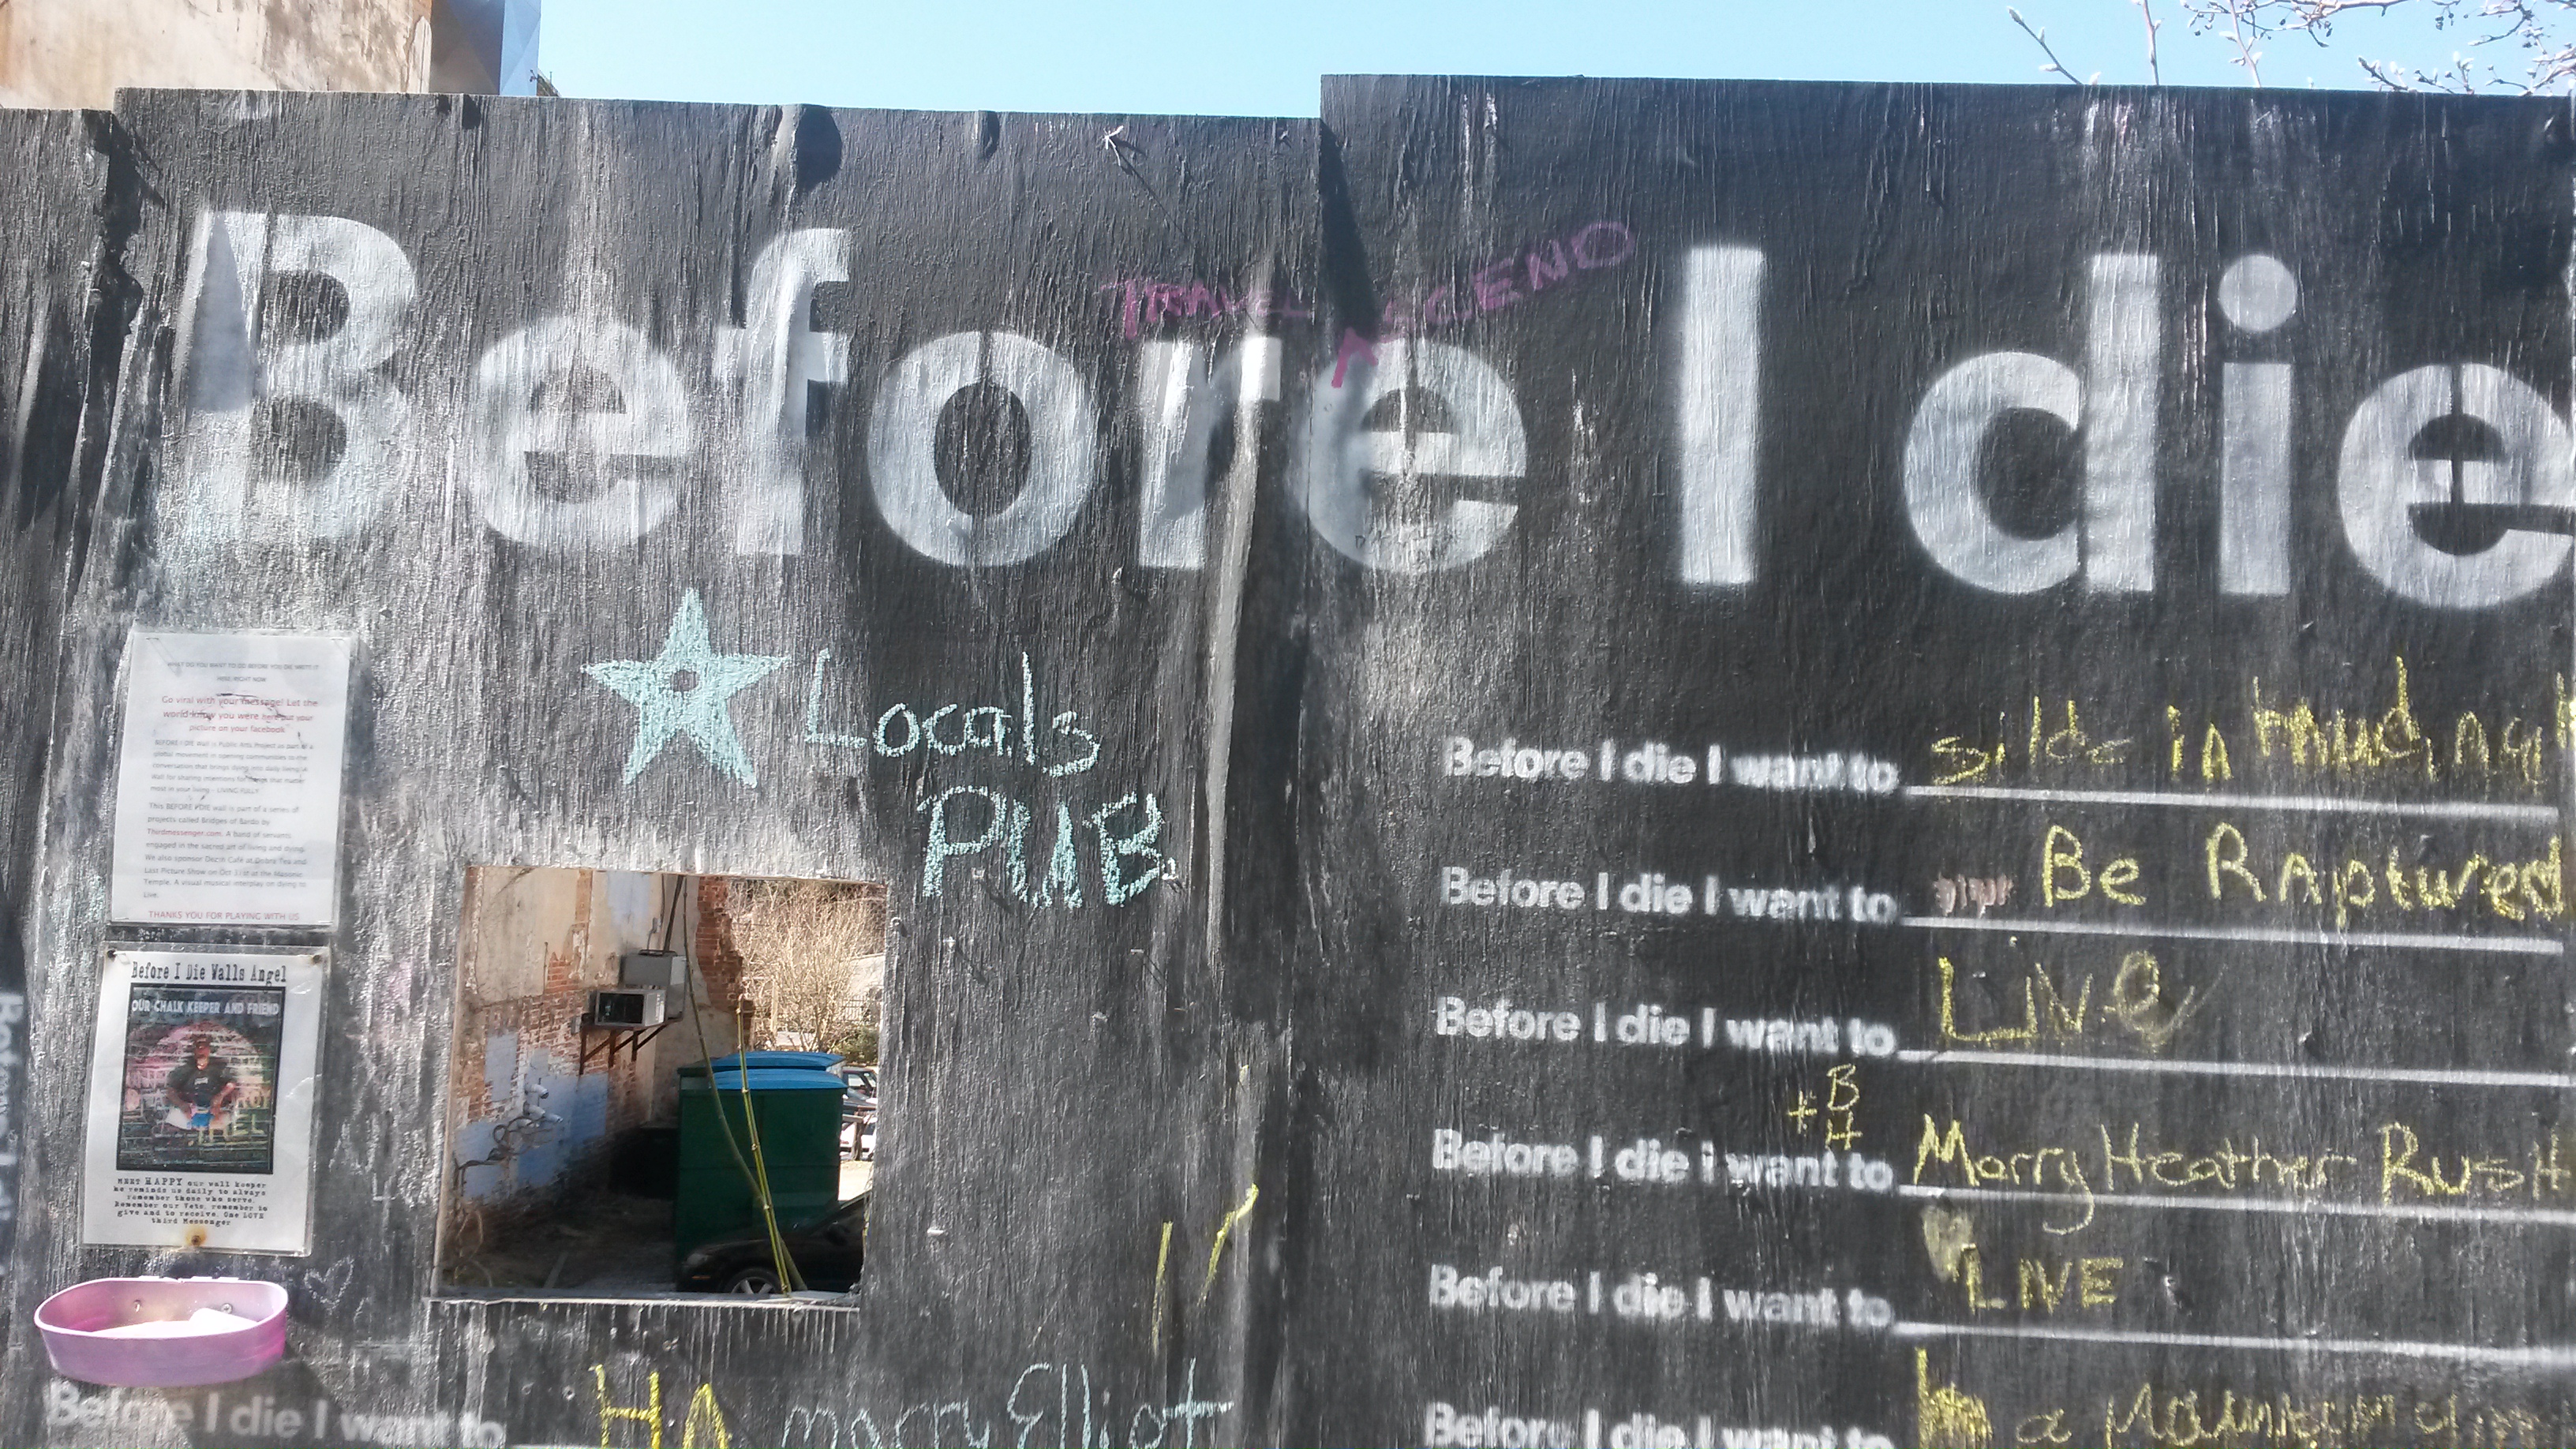 TRAVEL ASCEND
Before I die
WHAT DO YOU WANT TO DO BEFORE YOU DIE WRITE IT
HERE RIGHT NOW
Go viral with your message! Let the
world know you were here put your
picture on your facebook
BEFORE I DIE Wall is Public Arts Project as part of a
global movement in opening communities to the
conversation that brings dying into daily living. A
Wall for sharing intentions for things that matter
most in your living - LIVING FULLY
This BEFORE I DIE wall is part of a series of
projects called Bridges of Bardo by
Thirdmessenger.com. A band of servants
engaged in the sacred art of living and dying.
We also sponsor Death Café at Dobra Tea and
Last Picture Show on Oct 31st at the Masonic
Temple. A visual musical interplay on dying to
Live.
THANKS YOU FOR PLAYING WITH US
Before I Die Walls Angel
OUR CHALK KEEPER AND FRIEND
MEET HAPPY our wall keeper
he reminds us daily to always
remember those who serve.
Remember our Vets, remember to
give and to receive. One LOVE
third Messenger
Locals
PUB
Before I die I want to HA marry Elliot
Before I die I want to slide in mud
Before I die I want to Be RAptured
Before I die I want to Live
+ B
H
Before I die i want to Marry Heather Rush
Before I die I want to LIVE
Before I die I want to a